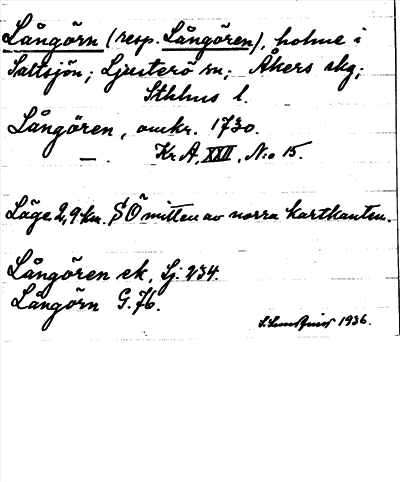 Långörn (resp. Långören), holme i
Saltsjön; Ljusterö sn; Åkers skg;
Sthlms l.
Långören, omkr. 1730.
—. Kr A, XXII, N:o 15.
Läge 2,9 km. SÖ mitten av norra kartkanten.
Långören ek. Lj: 234.
Långörn G. 76.
1936.